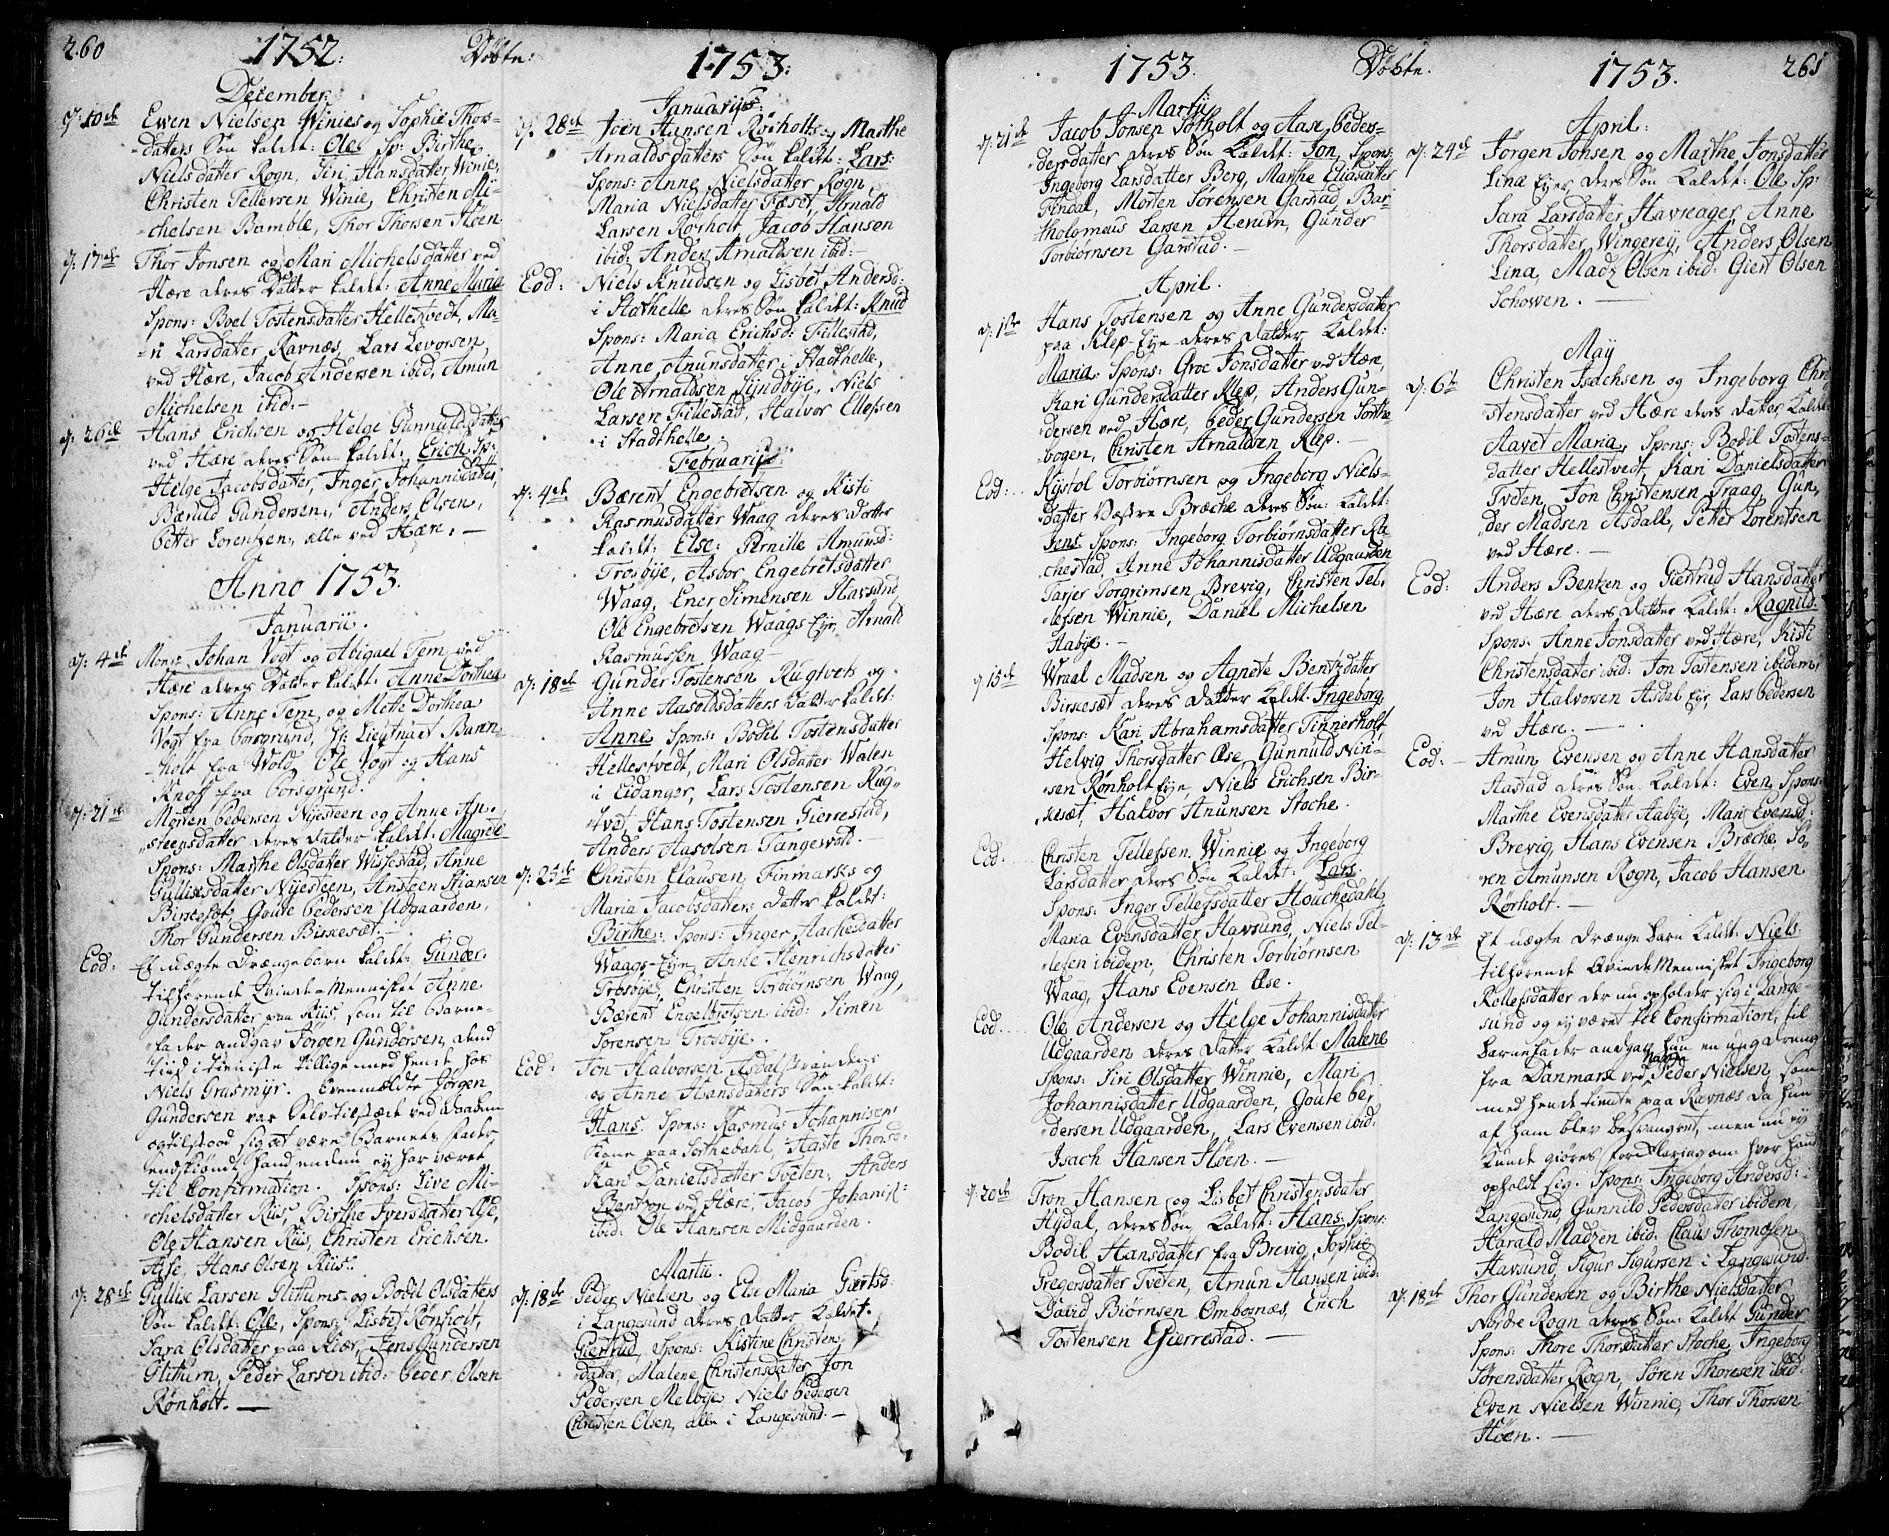 260
1752.
Döbte:
December.
d: 10de
Even Nielsen Winies og Sophie Thors-
datters Søn kaldet: Ole Sp: Birthe
Nielsdatter Rogn, Siri Hansdatter Winie,
Christen Tellevsen Winie, Christen Mi-
chelsen Bamble, Thor Thorsen Höen
d: 17de
Thor Jonsen og Mari Michelsdatter ved
Hære deres Datter kaldet: Anne Maria
Spons: Boel Tostensdatter Hellestvedt, Ma-
ri Larsdatter Ravnæs, Lars Levorsen
ved Hære, Jacob Andersen ibid, Amun
Michelsen ibid:-
d: 26de
Hans Erichsen og Helge Gunnulds datter
ved Hære deres Søn kaldet: Erich, Sp:
Helge Jacobsdatter, Inger Johannisdatter,
Bæruld Gundersen, Anders Olsen,
Petter Lorentzen, alle ved Hære. -
Anno 1753.
Januarii.
d: 4de
Monsr Johan Vogt og Abigael Tem ved
Hære deres Datter kaldet: Anne Dorthea
Spons: Anne Tem og Mette Dorthea
Vogt fra Porsgrund, Hr Lieutnant Bann-
holt fra Wold, Ole Vogt og Hans
Knoff fra Porsgrund.
d: 21de
Morten Pedersen Nijesteen og Anne An-
steensdatter deres Datter kaldet: Magrete
Spons: Marthe Olsdatter Wissestad, Anne
Gullixsdatter Nijesteen, Ansteen Stiansen
Birkesæt, Goute Pedersen Udgaarden,
Thor Gundersen Birkesæt.-
Eod:
Et uægte Drænge barn kaldet: Gunder:
tilhörende Qvinde-Mennisket Anne
Gundersdatter paa Riis, som til Barne-
fader angav Jörgen Gundersen, dend
tiid i tieniste tillige med hende hos
Niels Grasmyr. Evenmeldte Jörgen
Gundersen var Selv tilstæde ved Daaben
og tilstood sig at være Barnets fader
endskiøndt hand endnu ey har været
til Confirmation. Spons: Live Mi-
chelsdatter Riis, Birthe Iversdatter Ose,
Ole Hansen Riis, Christen Erichsen
Aase, Hans Olsen Riis.
d: 28de
Gullix Larsen Flithums og Bodil Olsdatters
Søn kaldet: Ole, Spons: Lisbet Rönholt,
Sara Olsdatter paa Kiær, Jens Gundersen
Flithum, Peder Larsen ibid: Peder Olsen
Rönholt. -
1753.
Januarii:
d: 28de
Joen Hansen Rørholts og Marthe
Arnaldsdatters Søn kaldet: Lars:
Spons: Anne Nielsdatter Rogn,
Maria Nielsdatter Fæset, Arnald
Larsen Rørholt, Jacob Hansen
ibid: Anders Arnaldsen ibid:-
Eod:
Niels Knudsen og Lisbet Andersd:
i Stathelle deres Søn kaldet: Knud
Spons: Maria Erichsd: Fillestad,
Anne Amunsdatter i Stadthelle,
Ole Arnaldsen Sundbye, Niels
Larsen Fillestad, Halvor Ellefsen
i Stadthelle.
Februarii:
d: 4de
Bærent Engebretsen og Kisti
Rasmusdatter Waag deres Datter
kaldet: Else: Pernille Amunsd:
Trosbye, Asbor Engebretsdatter
Waag, Ener Simensen Havsund,
Ole Engebretsen Waags-Eje, Arnald
Rasmussen Waag -
d: 18de
Gunder Tostensen Rugtvets og
Anne Aasoldsdatters Datter kaldet:
Anne Spons: Bodil Tostensdatter
Hellestvedt, Mari Olsdatter Walen
i Eidanger, Lars Tostensen Rug-
tvet, Hans Tostensen Gierrestad,
Anders Aasolsen Tangevold.
d: 25de
Christen Clausen Finmarks og
Maria Jacobsdatters Datter kaldet:
Birthe: Spons: Inger Aachesdatter
Waags-Eje, Anne Henrichsdatter
Trosbye, Christen Torbiörnsen Waag,
Bærent Engelbretsen ibid: Simen
Sørensen Trosbye.
Eod:
Jon Halvorsen Asdalstrandens
og Anne Hansdatters Søn kaldet:
Hans. Spons: Rasmus Johannisens
Kone paa Sorthedahl, Haste Thorsd:
Kari Danielsdatter Tveten, Anders
Bentzen ved Hære, Jacob Johanis:
ibid: Ole Hansen Midgaarden.
Martii.
d: 18de
Peder Nielsen og Else Maria Giertsd:
i Langesund deres Datter kaldet.
Giertrud, Spons: Kistine Christens-
datter, Malene Christensdatter, Jon
Pedersen Melbye, Niels Pedersen
Christen Olsen, alle i Langesund. -
1753.
Döbte.
Martij
d: 21de
Jacob Jonsen Sotholt og Aase Peders-
dersdatter deres Søn kaldet: Jon, Spons:
Ingeborg Larsdatter Berg, Marthe Eliasdatter
Findal, Morten Sørensen Garstad, Bar-
tholomeus Larsen Herum, Gunder
Torbiörnsen Garstad. -
April.
d: 1ste
Hans Tostensen og Anne Gundersdatter
paa Klep-Eje deres Datter kaldet:
Maria. Spons: Groe Jonsdatter ved Hære,
Kari Gundersdatter Klep, Anders Gun-
dersen ved Hære, Peder Gundersen Sorthe
bogen, Christen Arnaldsen Klep. -
Eod:
Kystol Torbiörnsen og Ingeborg Niels-
datter Vestre Bræche deres Søn: kaldet:
Jens. Spons: Ingeborg Torbiörnsdatter Ra
chestad, Anne Johannisdatter Udgaarden
Tarjer Torgrimsen Brevig, Christen Tel-
lefsen Winnie, Daniel Michelsen
Aabye. -
d 15de
Wraal Madsen og Agnete Bentzdatter
Birkesæt deres Datter kaldet Ingeborg.
Spons: Kari Abrahamsdatter Tinnerholt,
Helvig Thorsdatter Ose, Gunnuld Nir-
sen Rønholt Eje, Niels Erichsen Bir-
kesæt, Halvor Anunsen Stoche.
Eod:
Christen Tellefsen Winnie og Ingeborg
Larsdatter deres Søn kaldet: Lars.
Spons: Inger Tellefsdatter Houchedahl
Maria Evensdatter Havsund, Niels Tel-
lefsen ibidem; Christen Torbiörnsen
Waag, Hans Evensen Ose.
Eod.
Ole Andersen og Helge Johannisdatter
Udgaarden deres Datter kaldet Malene
Spons: Siri Olsdatter Winnie, Mari
Johannisdatter Udgaarden, Goute Pe-
dersen Udgaarden, Lars Evensen ibid:
Isach Hansen Höen. -
d: 20de
Tron Hansen og Lisbet Christensdatter
Hydal, deres Søn kaldet: Hans. Spons:
Bodil Hansdatter fra Brevig, Sophie
Gregersdatter Tveten, Amun Hansen ibid:
David Biørnsen Ombornæs, Erich
Tostensen Gierrestad. -
1753.
261
April:
d: 24de
Jörgen Jonsen og Marthe Jonsdatter
Lina Eje, deres Søn kaldet: Ole, Sp:
Sara Larsdatter Havreager, Anne
Thorsdatter Wingerej, Anders Olsen
Lina, Madz Olsen ibid: Giert Olsen
Schoven. -
May
d: 6te
Christen Isachsen og Ingeborg Chri
stensdatter ved Hære deres datter kaldet
Aavet Maria, Spons: Bodil Tostens-
datter Hellestvedt, Kari Danielsdatter
Tveten, Jon Christensen Traag, Gun-
der Madsen Asdall, Petter Lorentsen
ved Hære. -
Eod:
Anders Bentsen og Giertrud Hansdatter
ved Hære deres datter kaldet: Ragnild.
Spons: Anne Jonsdatter ved Hære, Kisti
Christensdatter ibid: Jon Tostensen ibidem,
Jon Halvorsen Asdal Eje, Lars Pedersen
ved Hære. -
Eod: -
Amun Evensen og Anne Hansdatter
Aastad deres Søn kaldet: Even, Spons:
Marthe Evensdatter Aabye, Mari Evensd:
Brevig, Hans Evensen Bræche, Sö-
ren Amunsen Rogn, Jacob Hansen
Rørholt. -
d: 13de
Et uægte Drænge barn kaldet: Niels:
tilhörende Qvinde Mennisket Ingeborg
Rollefsdatter der nu opholder sig i Lange-
sund og ey været til Confirmation, til
barnefader angav hun en ung dreng
fra Danmark ved Navn Peder Nielsen, som
med hende tiente paa Ravnæs da hun
af ham blev besvangret, men nu ey
kunde giøres forklaring om hvor hand
opholdt sig. Spons: Ingeborg Andersd: i
Langesund, Gunnild Pedersdatter ibidem,
Harald Madzen ibid: Claus Thomesen
Havsund, Sigur Sigursen i Langesund.
d: 18de
Thor Gundersen og Birthe Nielsdatter
Nordre Rogn deres Søn kaldet Gunder
Spons: Thore Thorsdatter Stoche, Ingeborg
Sörensdatter Rogn, Sören Thoresen ibid:
Even Nielsen Winnie, Thor Thorsen
Höen. -